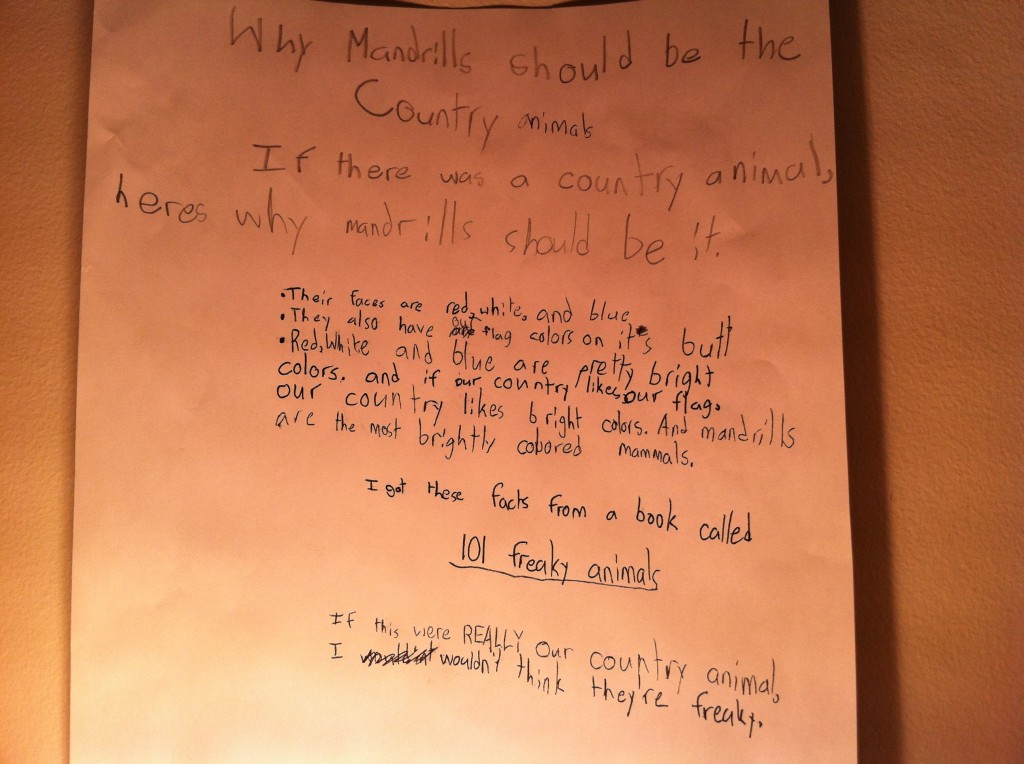 Why Mandrills should be the
Country animals
If there was a country animal,
heres why mandrills should be it.
•Their faces are red, white, and blue
•They also have our flag colors on it's butt
•Red, White and blue are pretty bright
colors. and if our country likes our flag,
our country likes bright colors. And mandrills
are the most brightly cobored mammals.
I got these facts from a book called
101 freaky animals
If this were REALLY our country animal,
I wouldn't think they're freaky.